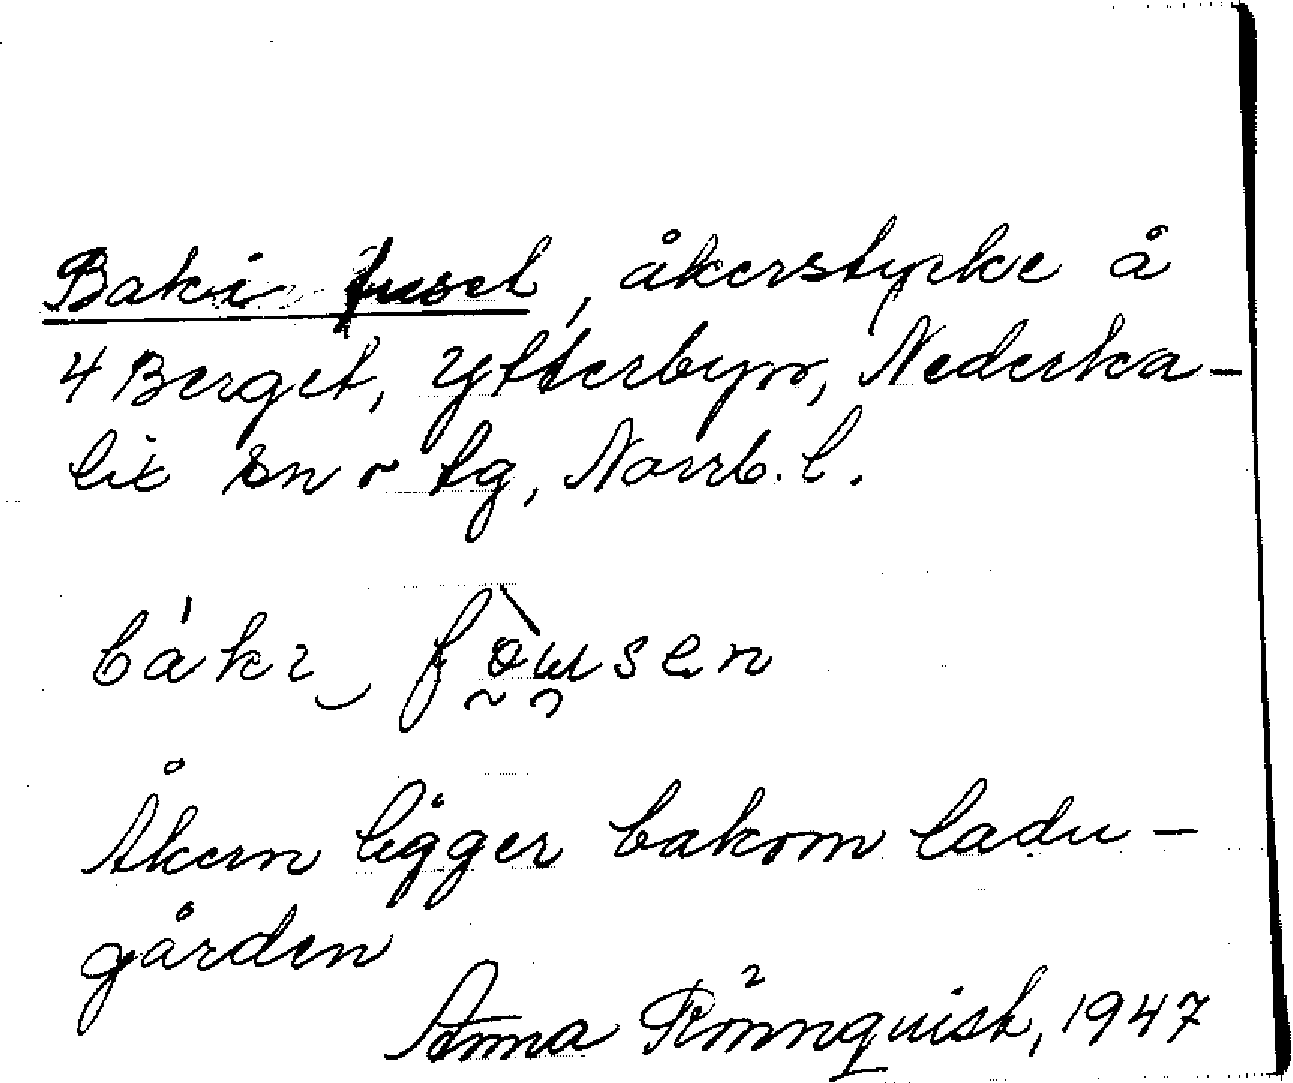 Baki fuset, åkerstycke å
4 Berget, Ytterbyn, Nederka-
lix sn o tg, Norrb. l.
Åkern ligger bakom ladu-
gården
Anna Rönnqvist, 1947